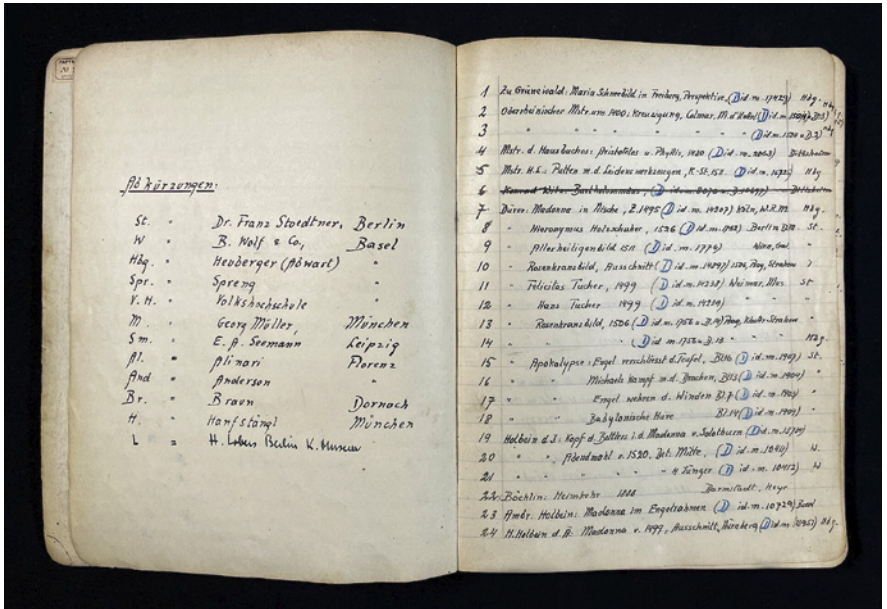 Abkürzungen:
St. = Dr. Franz Stoedtner, Berlin
W = B. Wolf & Co., Basel
Hbg. = Heuberger (Abwart) "
Spr. = Spreng "
V.H. = Volkshochschule "
M. = Georg Müller, München
Sm. = E. A. Seemann Leipzig
Al. = Alinari Florenz
And = Anderson "
Br. = Braun Dornach
H. = Hanfstängl München
L = Berlin K. Museum
1 Zu Grünewald: Maria Schneebild in Freiburg, Perspektive, (D id. m. 17429) Hbg.
2 Oberrheinischer Mstr. um 1400: Kreuzigung, Colmar, (D id. m.
3 " " " " " " (D id. m.
4 Mstr. d. Hausbuches: Aristoteles u. Phyllis, (D id. m.
5 Mstr. H.L.: Putten m. d. Leidenswerkzeugen, K-St. 1511 (D id. m. Hbg
6 (D id. m.
7 Dürer: Madonna in Nische, Z. 1495 (D id. m. 14207) Köln, W.R.M. Hbg.
8 " Hieronymus Holzschuher, 1526 (D id. m. Berlin St.
9 " Allerheiligenbild 1511 (D id. m. 1774) Wien,
10 " Rosenkranzbild, Ausschnitt (D id. m. 14897) 1506, Prag, Strahow
11 " Felicitas Tucher, 1499 (D id. m. 14238) Weimar, Mus St
12 " Hans Tucher 1499 (D id. m. 14239) " "
13 " Rosenkranzbild, 1506 (D id. m. 1756 Prag, Kloster Strahow "
14 " " (D id. m. 1756 Hbg.
15 " Apokalypse: Engel verschliesst d. Teufel, Bl.16 (D id. m. 1907) St.
16 " " Michaels Kampf m. d. Drachen, Bl.13 (D id. m. "
17 " " Engel wehren d. Winden Bl.7 (D id. m. "
18 " " Babylonische Hure Bl.14 (D id. m. "
19 Holbein d. J: Kopf d. Bettlers i. d. Madonna v. Solothurn (D id. m.
20 " " Abendmahl v. 1520, Det. Mitte, (D id. m. 10411) W.
21 " " " 4 Jünger (D id. m. 10412) W
22 Böcklin: Heimkehr Darmstadt, Heyr
23 Ambr. Holbein: Madonna im Engelsrahmen (D id. m. 10729) Basel
24 H. Holbein d. Ä: Madonna v. 1499, Ausschnitt, Nürnberg (D id. m. Hbg.